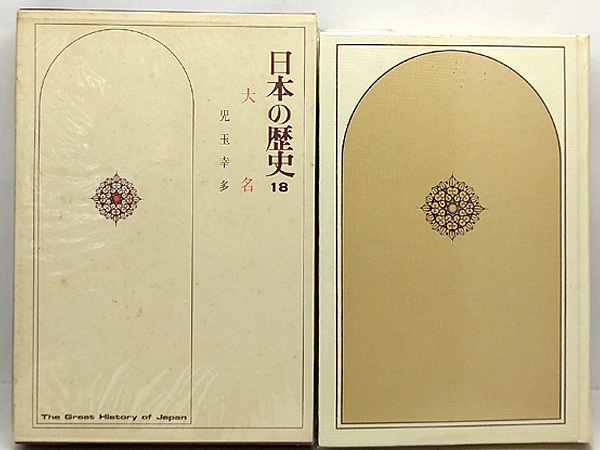 日本の歴史 18
大名
児玉幸多
The Great History of Japan